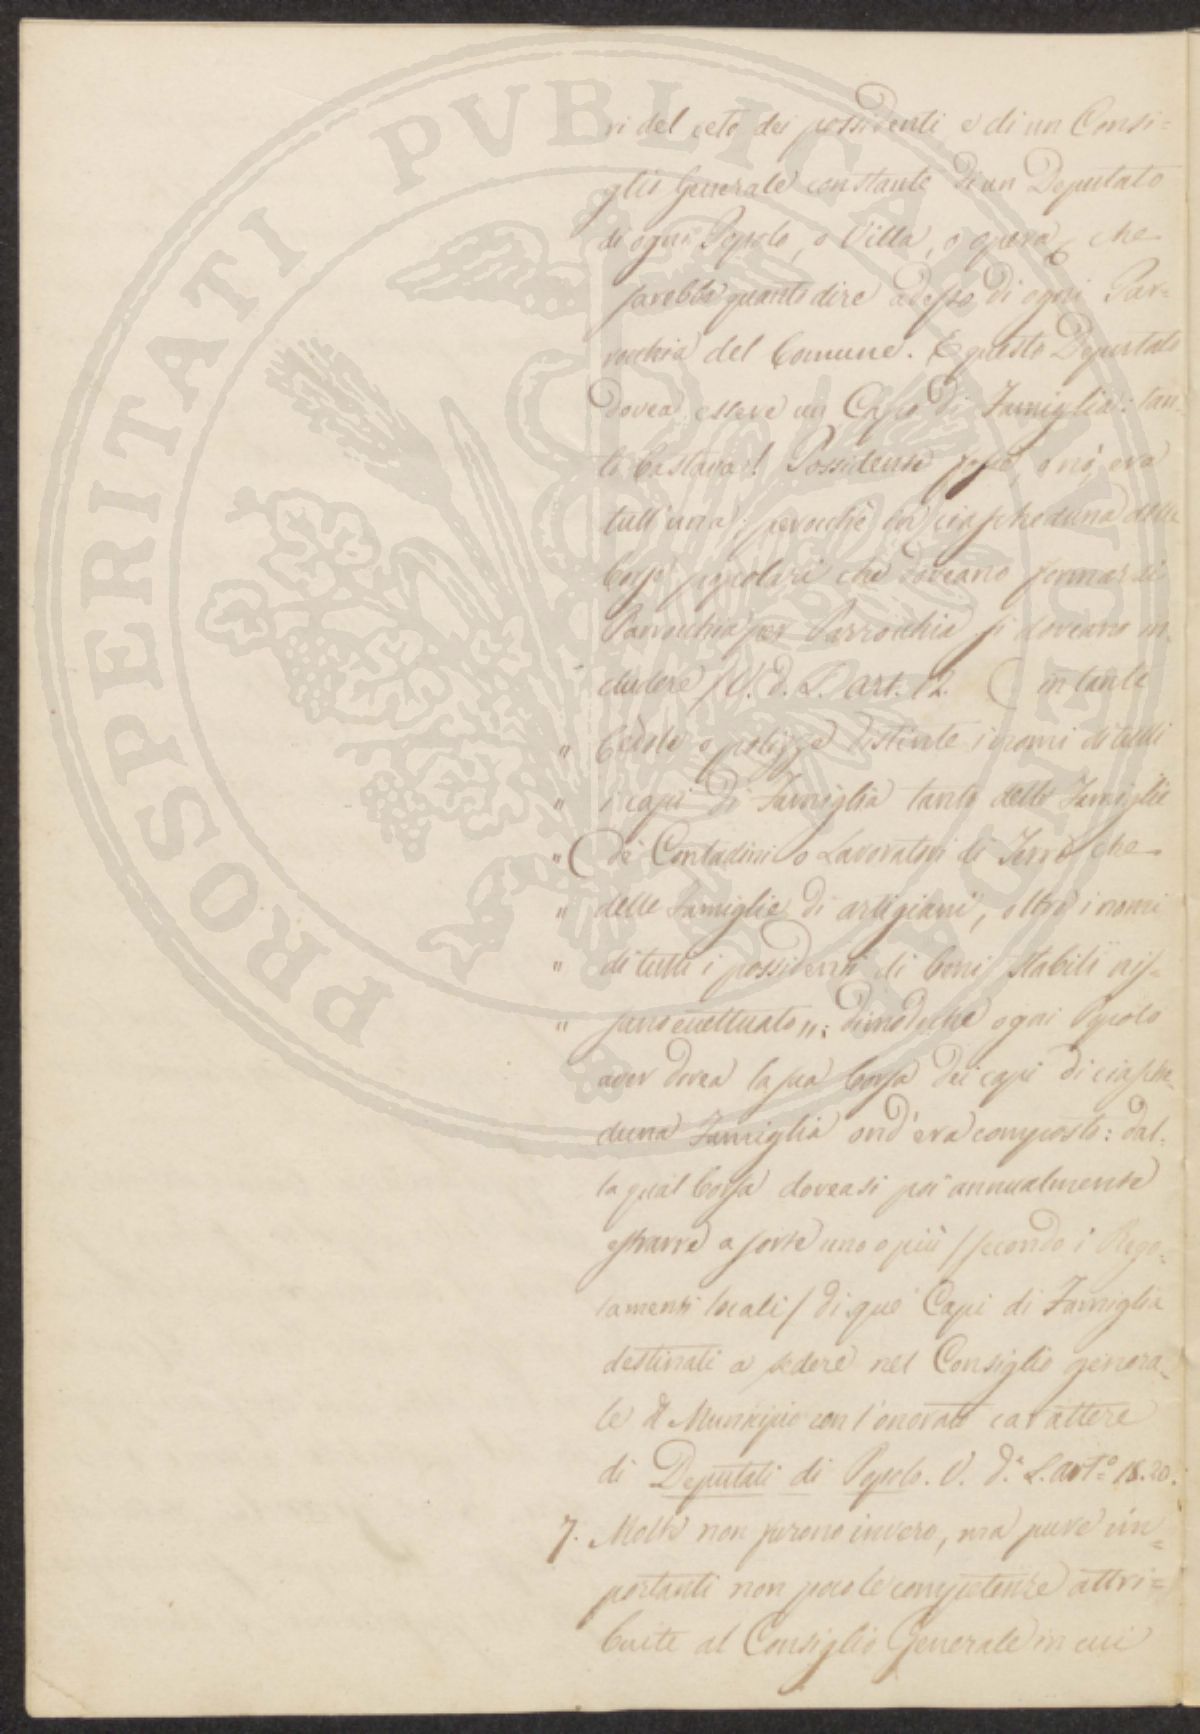 PROSPERITATI PVBLICAE AVGENDAE
ri del ceto dei possidenti e di un Consi=
glio Generale constante di un Deputato
di ogni Popolo, o Villa, o opera, che
sarebbe quanto dire adesso di ogni Par=
rocchia del Comune. E questo Deputato
dovea essere un Capo di Famiglia: tan=
to bastava! Possidente fosse, o nò, era
tutt'una; perocchè in ciascheduna delle
borse popolari che doveano formarsi
Parrocchia per Parrocchia si doveano in=
cludere /V. d. L. art. 12. in tante
" Cedole o polizze distinte i nomi di tutti
" i capi di Famiglia tanto delle Famiglie
" de' Contadini o Lavoratori di Terre che
" delle Famiglie di artigiani, oltre i nomi
" di tutti i possidenti di beni stabili nis=
" suno eccettuato ": dimodochè ogni Popolo
aver dovea la sua borsa dei capi di ciasche=
duna Famiglia ond'era composto: dal=
la qual borsa doveasi poi annualmente
estrarre a sorte uno o più /secondo i Rego=
lamenti locali/ di que' Capi di Famiglia
destinati a sedere nel Consiglio genera=
le di Municipio con l'onorato carattere
di Deputati di Popolo. V. d.a L. art.o 18.20.
7. Molte non furono invero, ma pure im=
portanti non poco le competenze attri=
buite al Consiglio Generale in cui